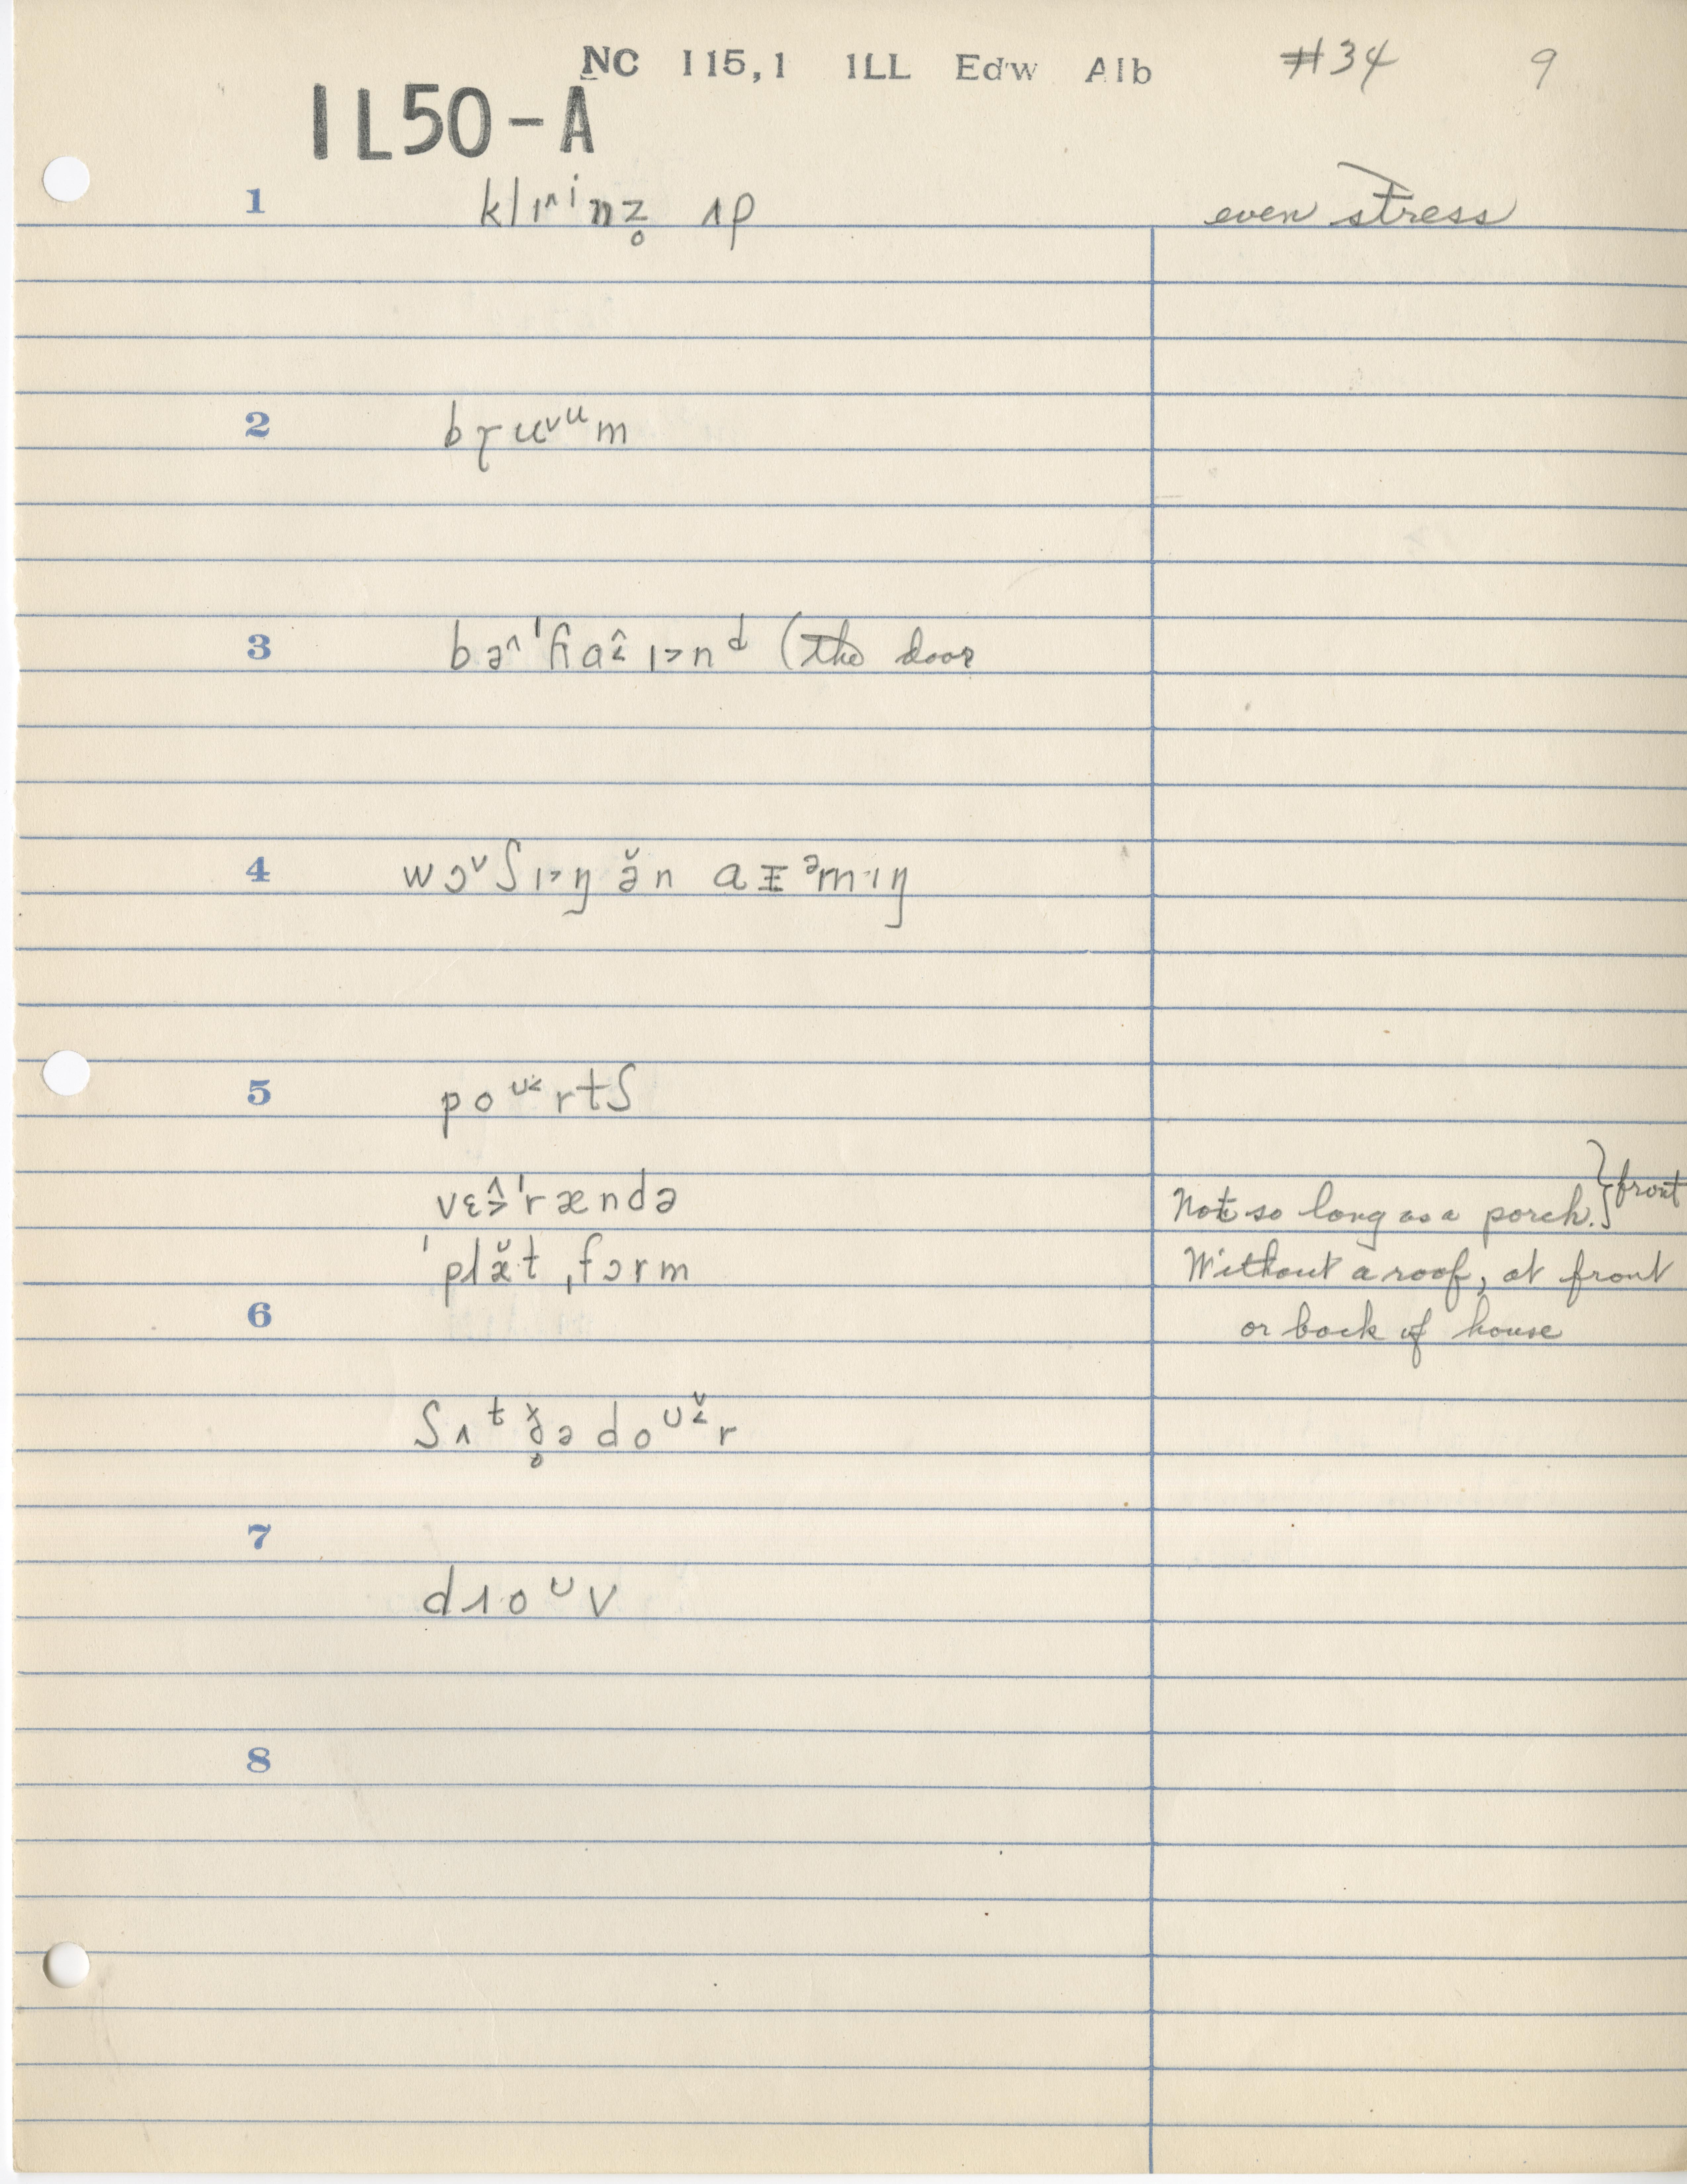 NC 115,1 ILL Edw Alb #34 9
IL50-A
1 klɪ˄ⁱnz̥ ʌp even stress
2 bɼu˅ᵘm
3 bə˄ˈɦaɪ˃nᵈ (the door
4 wɔ˅ʃɪ˃ŋ ə̆n aɪᵊm·ɪŋ
5 poᶷ˂rtʃ
vɛˈrændə Not so long as a porch. } front
ˈplæ̆t ˌfɔrm Without a roof, at front
6 or back of house
ʃʌᵗ ð̥ə doᶷr
7
dɹoᶷv
8